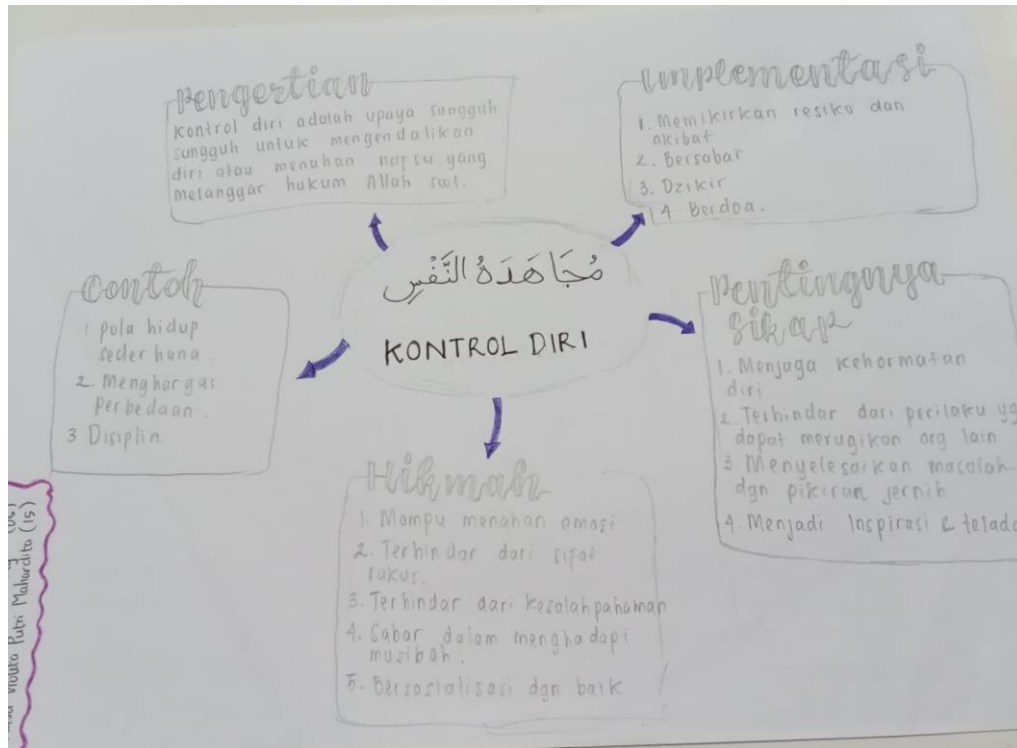 Pengertian
Kontrol diri adalah upaya sungguh
sungguh untuk mengendalikan
diri atau menahan napsu yang
melanggar hukum Allah swt.
Implementasi
1. Memikirkan resiko dan
akibat
2. Bersabar
3. Dzikir
4 Berdoa.
مُجَاهَدَةُ النَّفْسِ
KONTROL DIRI
Contoh
1 pola hidup
sederhana.
2. Menghargai
Perbedaan.
3 Disiplin
Pentingnya
Sikap
1. Menjaga kehormatan
diri
2. Terhindar dari perilaku yg
dapat merugikan org lain
3. Menyelesaikan masalah
dgn pikiran jernih
4. Menjadi Inspirasi & telada
Hikmah
1. Mampu menahan emosi
2. Terhindar dari sifat
rakus.
3. Terhindar dari kesalahpahaman
4. Sabar dalam menghadapi
musibah.
5. Bersosialisasi dgn baik
Putri Mahardita (15)